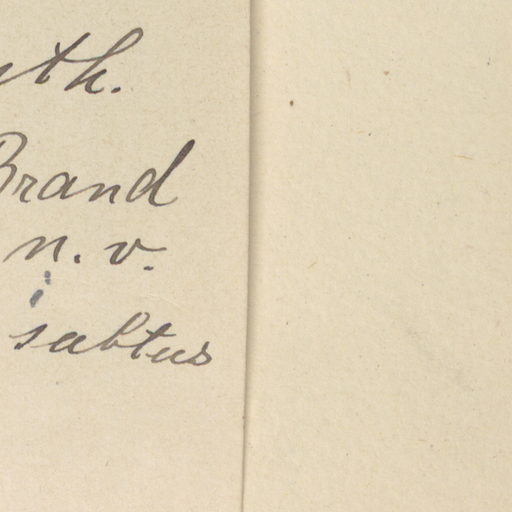 th.
Brand
n. v.
subtus